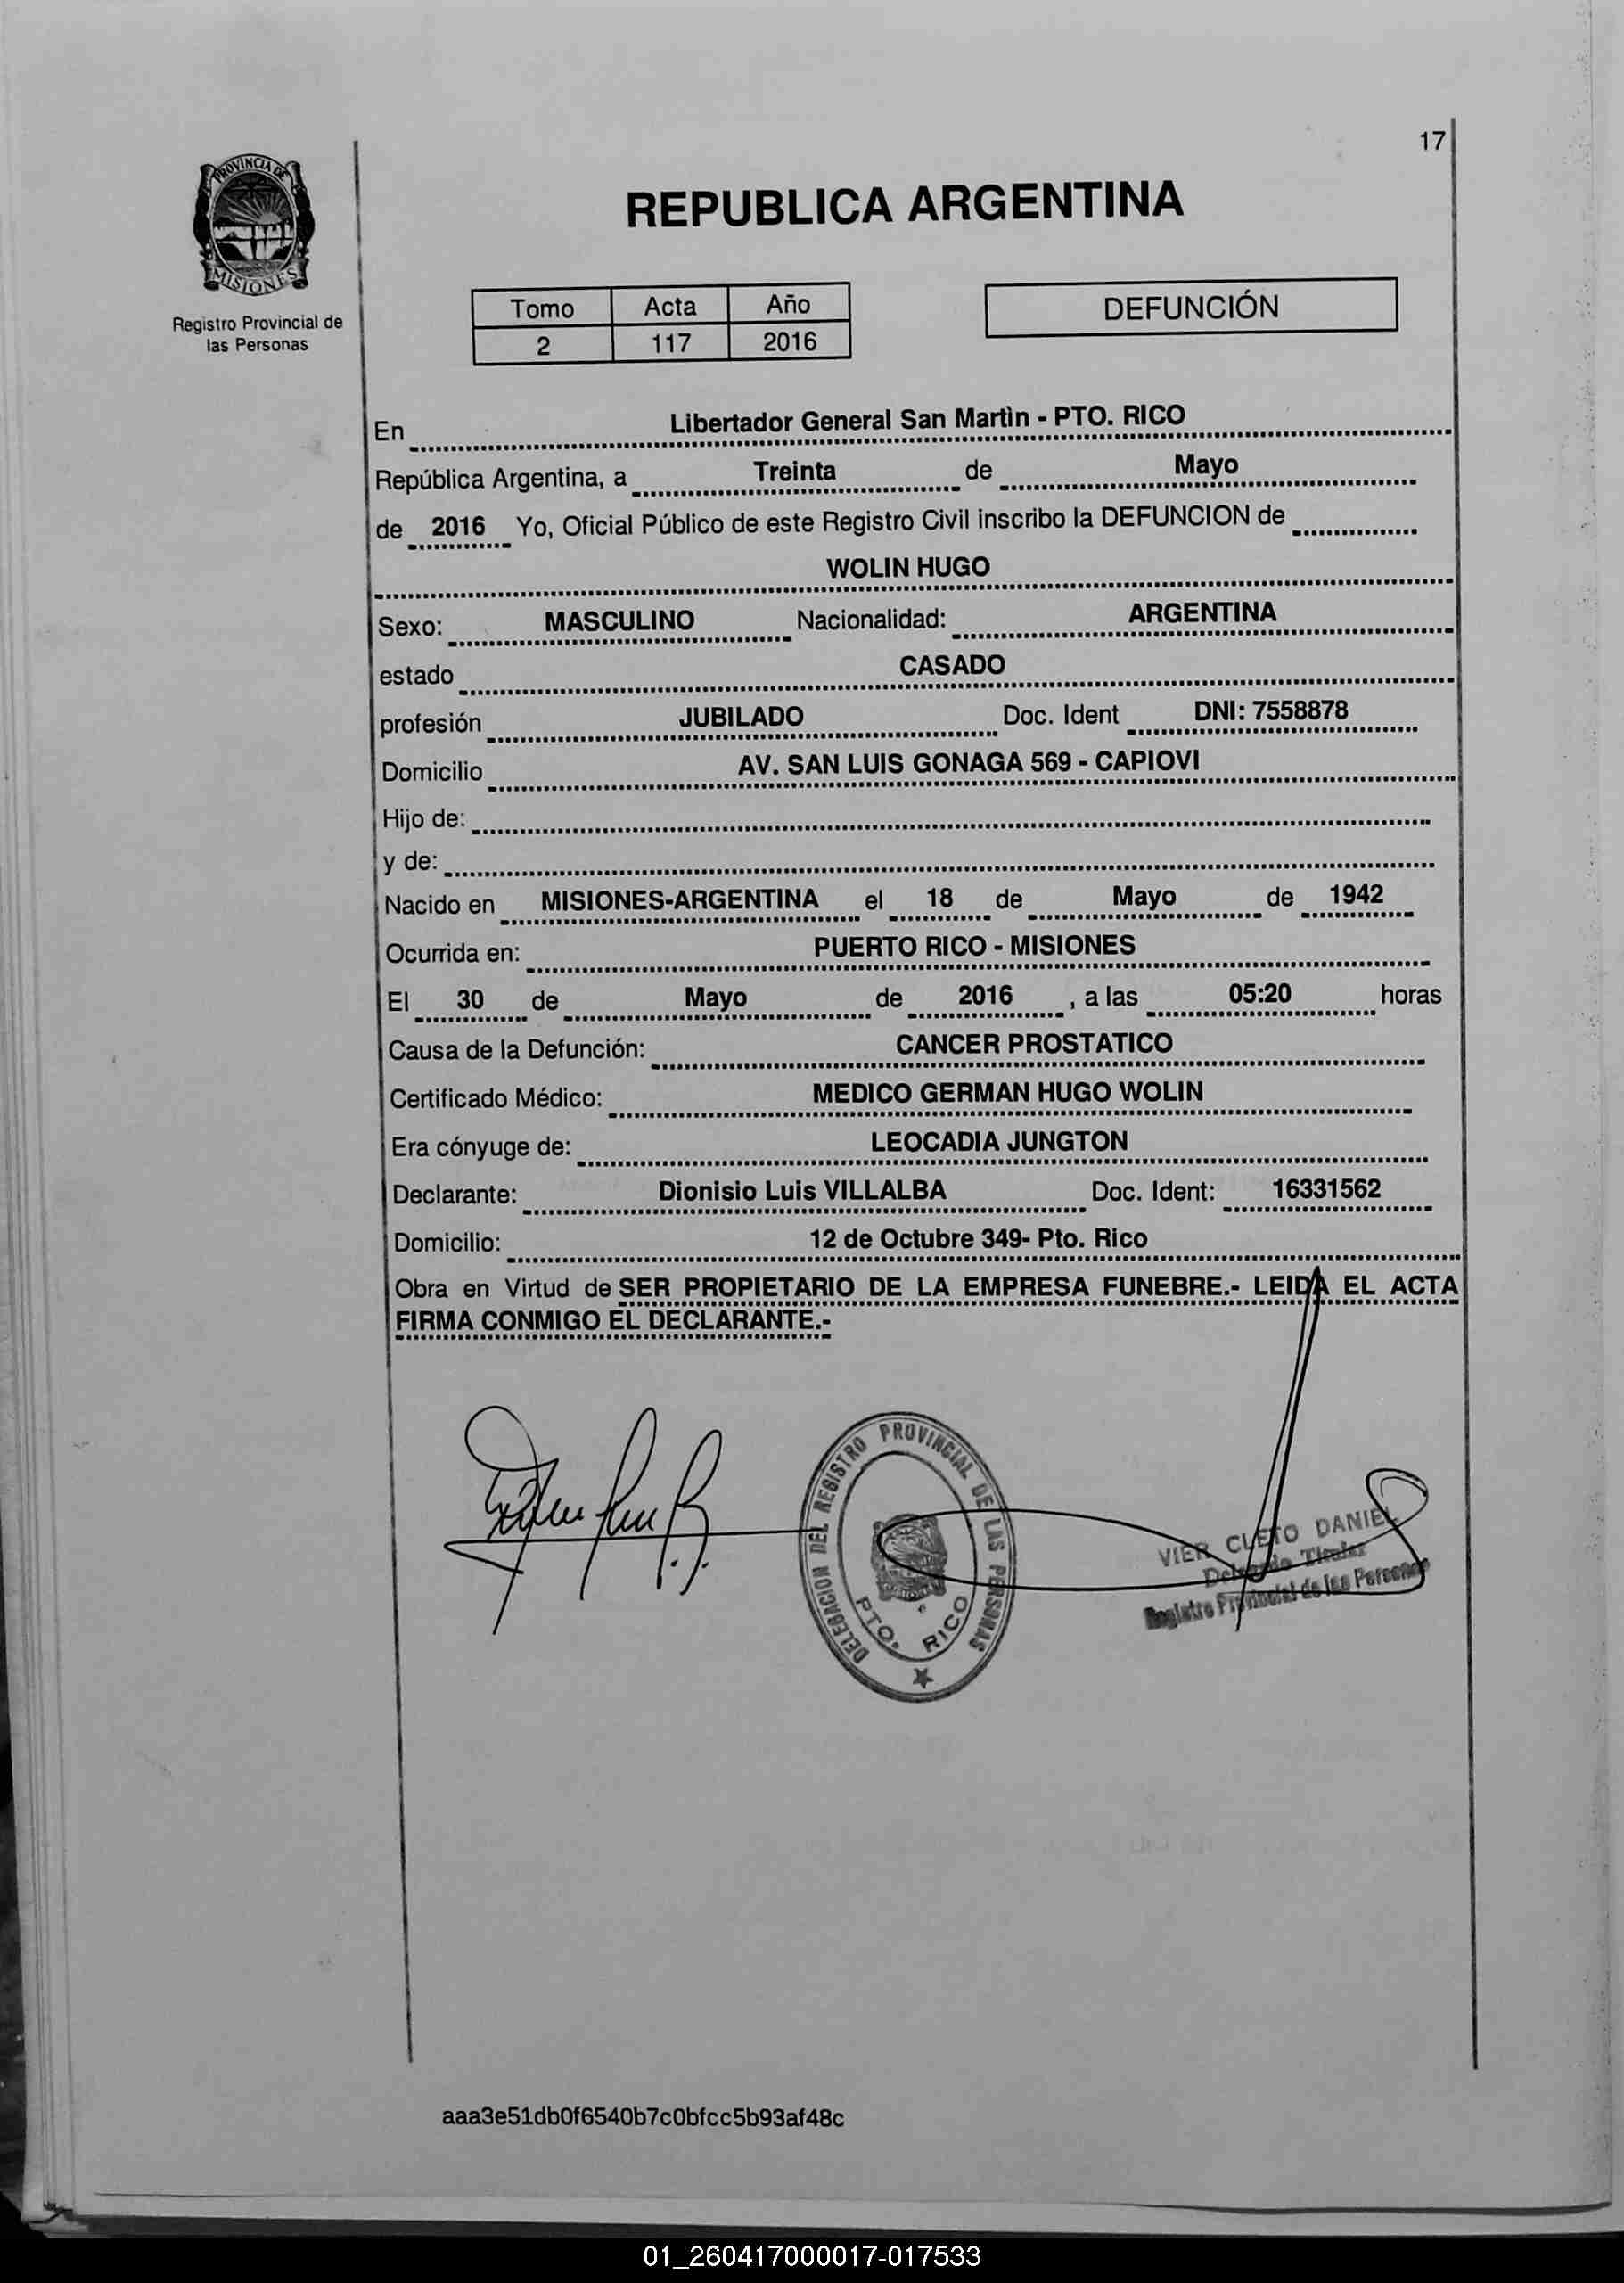 17
PROVINCIA DE
MISIONES
Registro Provincial de
las Personas
REPUBLICA ARGENTINA
Tomo Acta Año
2 117 2016
DEFUNCIÓN
En Libertador General San Martìn - PTO. RICO
República Argentina, a Treinta de Mayo
de 2016 Yo, Oficial Público de este Registro Civil inscribo la DEFUNCION de
WOLIN HUGO
Sexo: MASCULINO Nacionalidad: ARGENTINA
estado CASADO
profesión JUBILADO Doc. Ident DNI: 7558878
Domicilio AV. SAN LUIS GONAGA 569 - CAPIOVI
Hijo de:
y de:
Nacido en MISIONES-ARGENTINA el 18 de Mayo de 1942
Ocurrida en: PUERTO RICO - MISIONES
El 30 de Mayo de 2016 , a las 05:20 horas
Causa de la Defunción: CANCER PROSTATICO
Certificado Médico: MEDICO GERMAN HUGO WOLIN
Era cónyuge de: LEOCADIA JUNGTON
Declarante: Dionisio Luis VILLALBA Doc. Ident: 16331562
Domicilio: 12 de Octubre 349- Pto. Rico
Obra en Virtud de SER PROPIETARIO DE LA EMPRESA FUNEBRE.- LEIDA EL ACTA
FIRMA CONMIGO EL DECLARANTE.-
DELEGACION DEL REGISTRO PROVINCIAL DE LAS PERSONAS
PTO. RICO
VIER CLETO DANIEL
Delegado Titular
Registro Provincial de las Personas
aaa3e51db0f6540b7c0bfcc5b93af48c
01_260417000017-017533